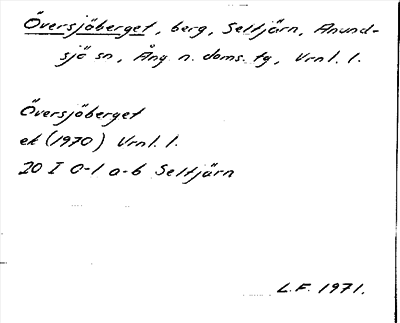 Översjöberget, berg, Seltjärn, Anund-
sjö sn, Ång. n. doms. tg, Vrnl. l.
Översjöberget
ek (1970) Vrnl. l.
20 I 0-1 a-b Seltjärn
L.F. 1971.